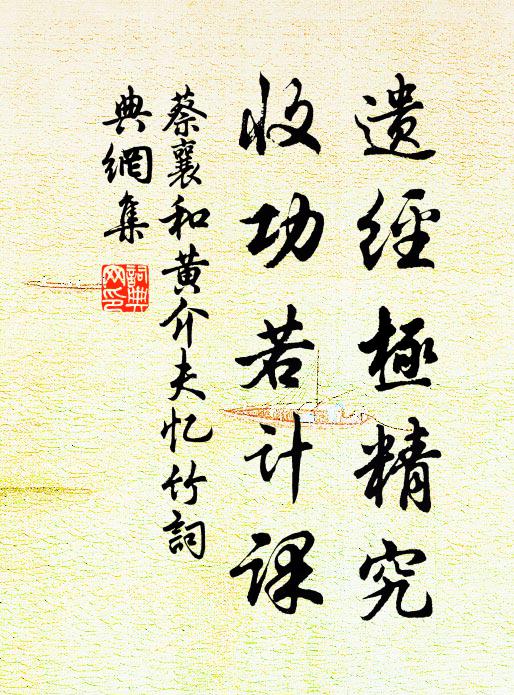 遗经極精究
收功若计课
蔡襄和黄介夫忆竹詞
典網集
詞典网印